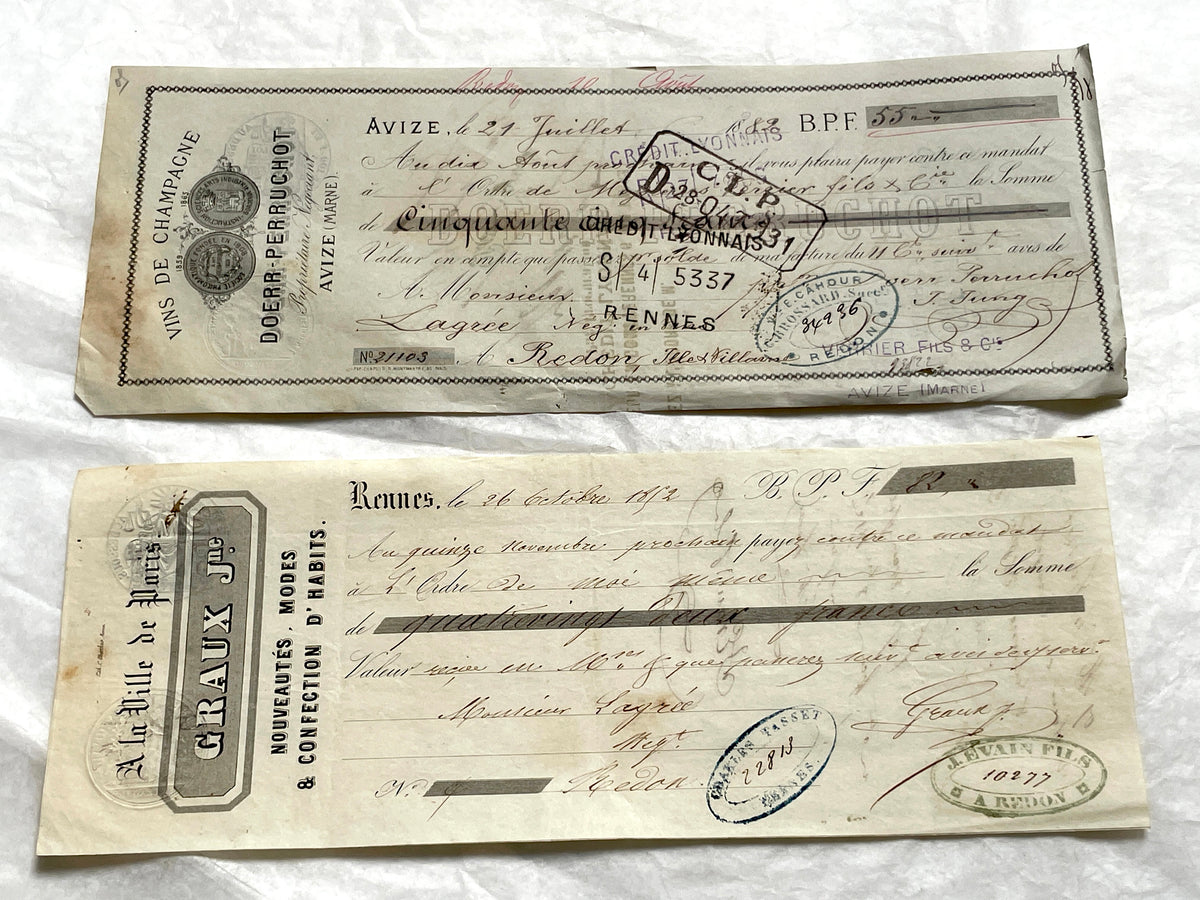 VINS DE CHAMPAGNE
DOERR-PERRUCHOT
Propriétaire Négociant
AVIZE (MARNE).
Redon 10 Août
AVIZE, le 21 Juillet 188 B.P.F. 55
Au dix Août prochain il vous plaira payer contre ce mandat
à l'Ordre de M Varnier fils & Cie la Somme
de Cinquante cinq francs
DOERR-PERRUCHOT
Valeur en compte que passerez solde de ma facture du 11 Ct suivt avis de
A Monsieur Doerr Perruchot
Lagrée Neg. en vins T. Jung
No 21103 A Redon, Ille & Villaine
CREDIT LYONNAIS
C.L.P.
D
CREDIT LYONNAIS
S/4 5337
RENNES
CAHOUR
BROSSARD Succr
34296
REDON
VARNIER FILS & Cie
AVIZE (MARNE)
A la Ville de Paris.
GRAUX Jne
NOUVEAUTÉS, MODES
& CONFECTION D'HABITS.
Rennes, le 26 Octobre 1852 B. P. F. 82
Au quinze novembre prochain payez contre ce mandat
à L'Ordre de moi même la Somme
de quatrevingt deux francs
Valeur reçue en Mses & que passerez suivt avis de votre servr
Monsieur Lagrée Graux j.
Negt.
No. 9 Redon.
CHARLES TASSET
22813
RENNES.
J. EVAIN FILS
10277
A REDON